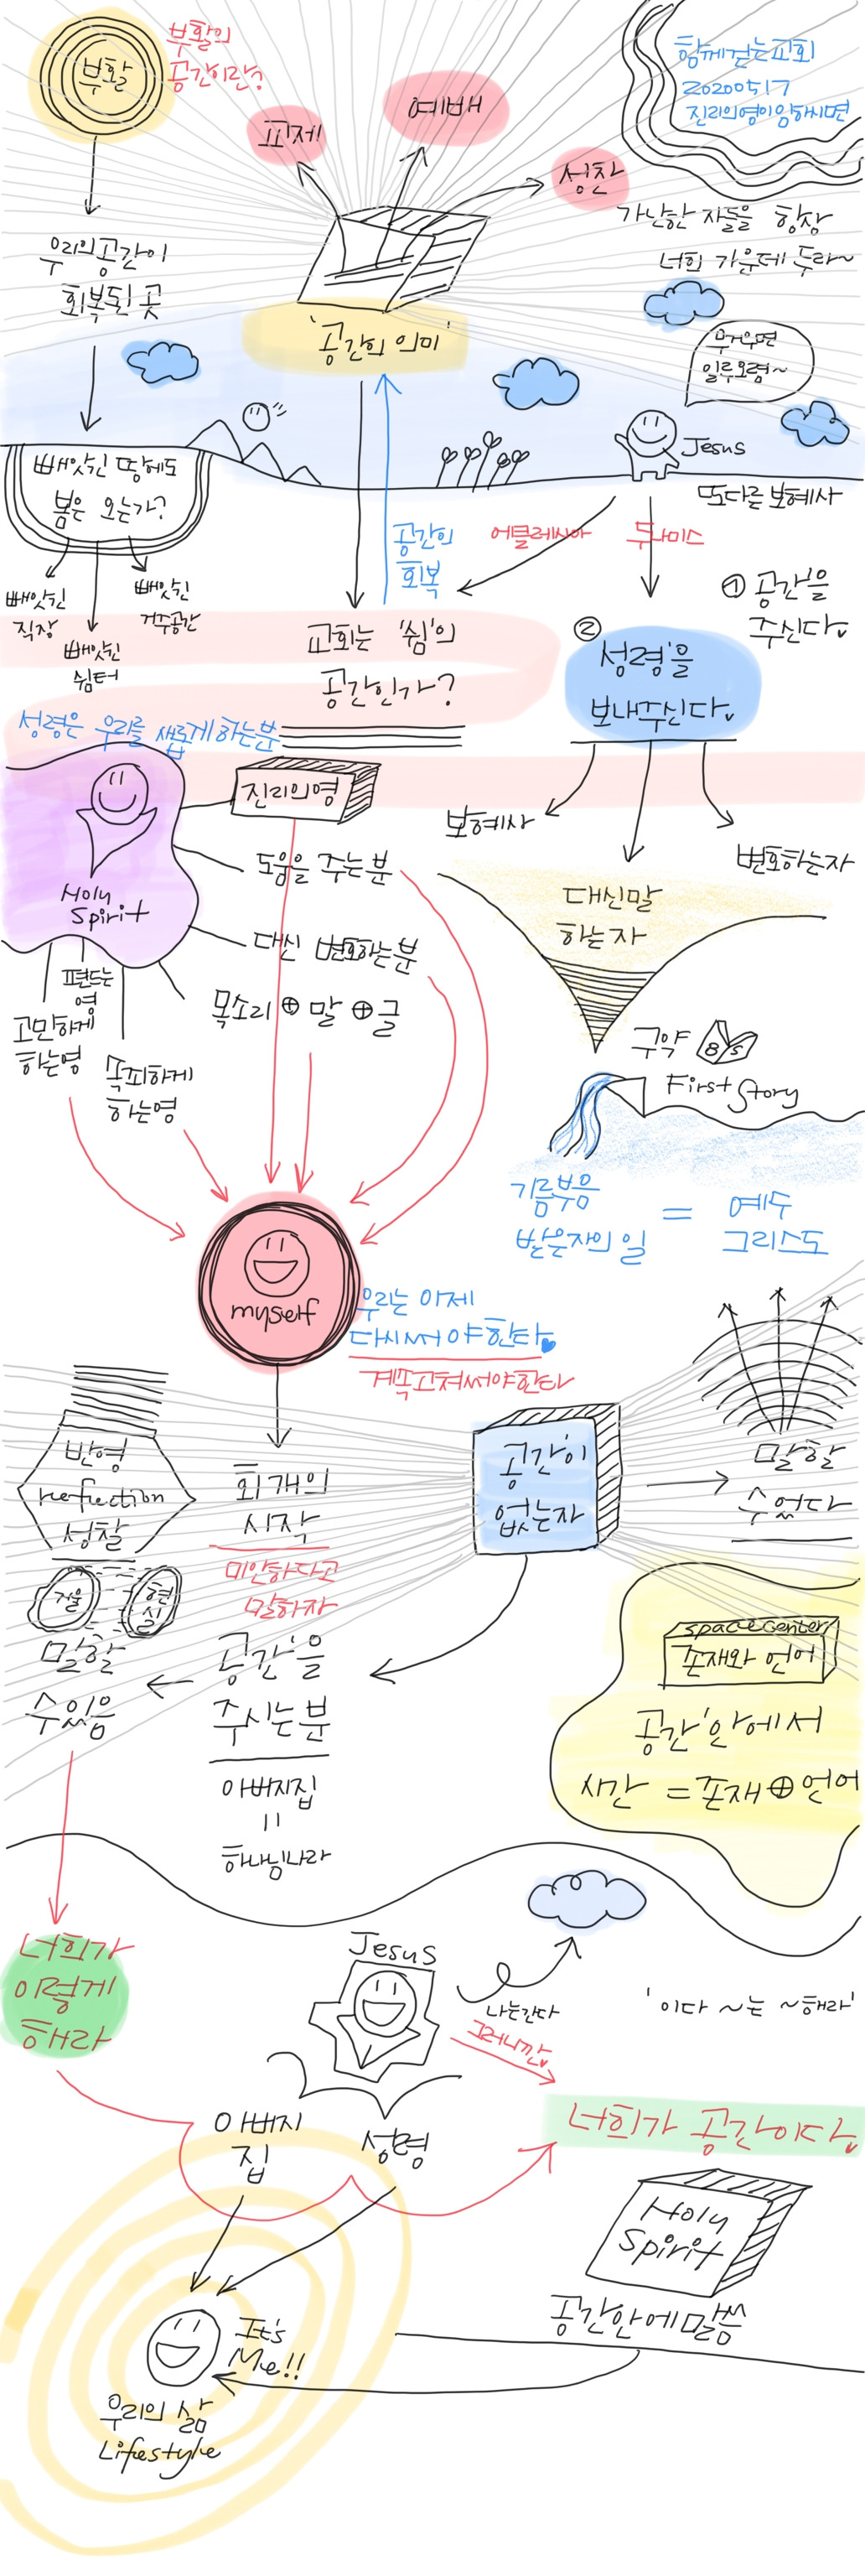 부활
부활의
공간이란?
함께걷는교회
20200517
진리의영이임하시면
교제
예배
성찬
가난한 자들을 항상
너희 가운데 두라~
우리의공간이
회복된 곳
'공간의 의미'
무거우면
일루오렴~
Jesus
또다른 보혜사
빼앗긴 땅에도
봄은 오는가?
빼앗긴
직장
빼앗긴
쉼터
빼앗긴
거주공간
공간의
회복
에클레시아
두나미스
① 공간을
주신다.
교회는 '쉼'의
공간인가?
②
'성령'을
보내주신다.
성령은 우리를 새롭게하는분
진리의영
Holy
Spirit
도움을 주는분
대신 변호하는분
목소리 ⊕ 말 ⊕ 글
편드는
영
고민하게
하는영
똑띠하게
하는영
보혜사
변호하는자
대신말
하는자
구약
First Story
기름부음
받은자의 일
=
예수
그리스도
myself
우리는 이제
다시써야한다
계속고쳐써야한다
반영
reflection
성찰
거울
현실
말할
수있음
회개의
시작
미안하다고
말하자
'공간'이
없는자
말할
수없다
'공간'을
주시는분
아버지집
=
하나님나라
space center
존재와 언어
'공간'안에서
시간 = 존재 ⊕ 언어
너희가
이렇게
해라
Jesus
나는간다
그러니깐
'이다 ~는 ~해라'
아버지
집
성령
너희가 공간이다
Holy
Spirit
공간안에말씀
It's
Me!!
우리의 삶
Lifestyle